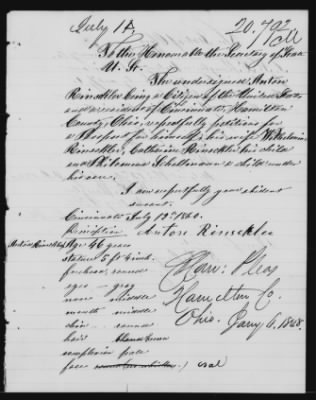 July 14. 20.792
To the Honorable the Secretary of State
U. St.
The undersigned Anton
Rinschler being a Citizen of the United States
and a resident of Cincinnati, Hamilton
County, Ohio, respectfully petitions for
a Passport for himself, his wife Wilhelmina
Rinschler, Catharina Rinschler his child
and Philomena Schellmann a child under
his care.
I am respectfully your obedient
servant.
Cincinnati July 12th 1860.
Description Anton Rinschler
Anton Rinschler Age 46 years
stature 5 ft inch.
forehead, round
eyes – gray
nose middle
mouth middle
chin round
hair
complexion pale
face oval
Com: Pleas
Hamilton Co.
Ohio. Jany 6. 1848.